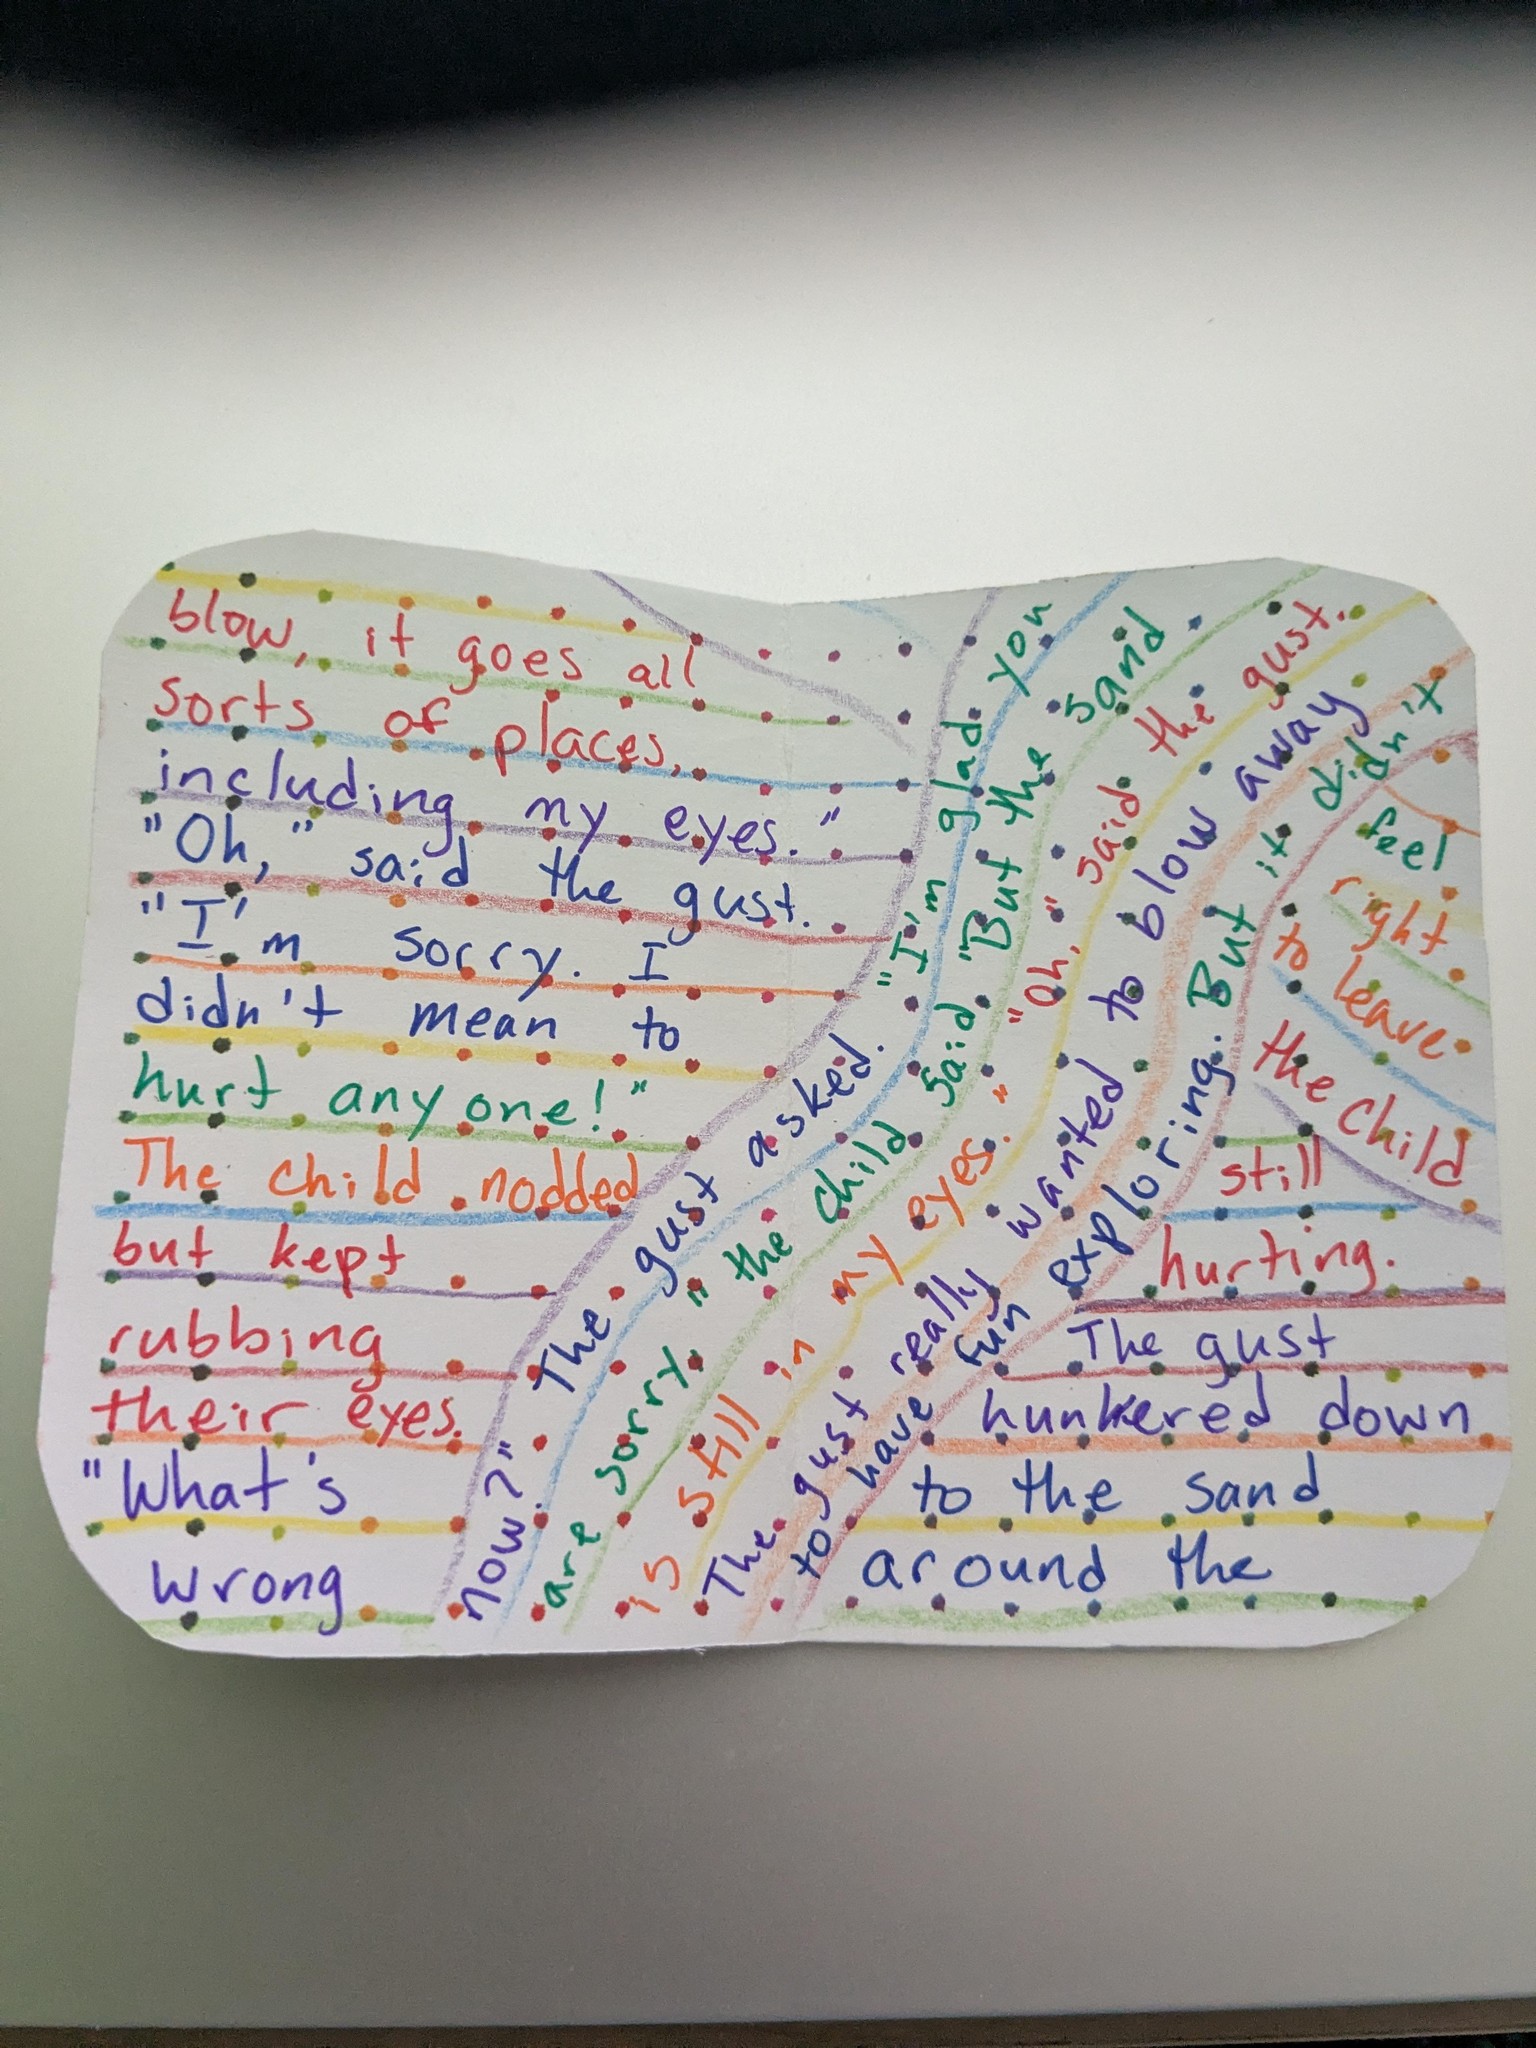 blow, it goes all
sorts of places,
including my eyes."
"Oh," said the gust.
"I'm sorry. I
didn't mean to
hurt anyone!"
The child nodded
but kept
rubbing
their eyes.
"What's
wrong
now?" The gust asked. "I'm glad you
are sorry," the child said "But the sand
is still in my eyes." "Oh," said the gust.
The gust really wanted to blow away
to have fun exploring. But it didn't
feel
right
to leave
the child
still
hurting.
The gust
hunkered down
to the sand
around the